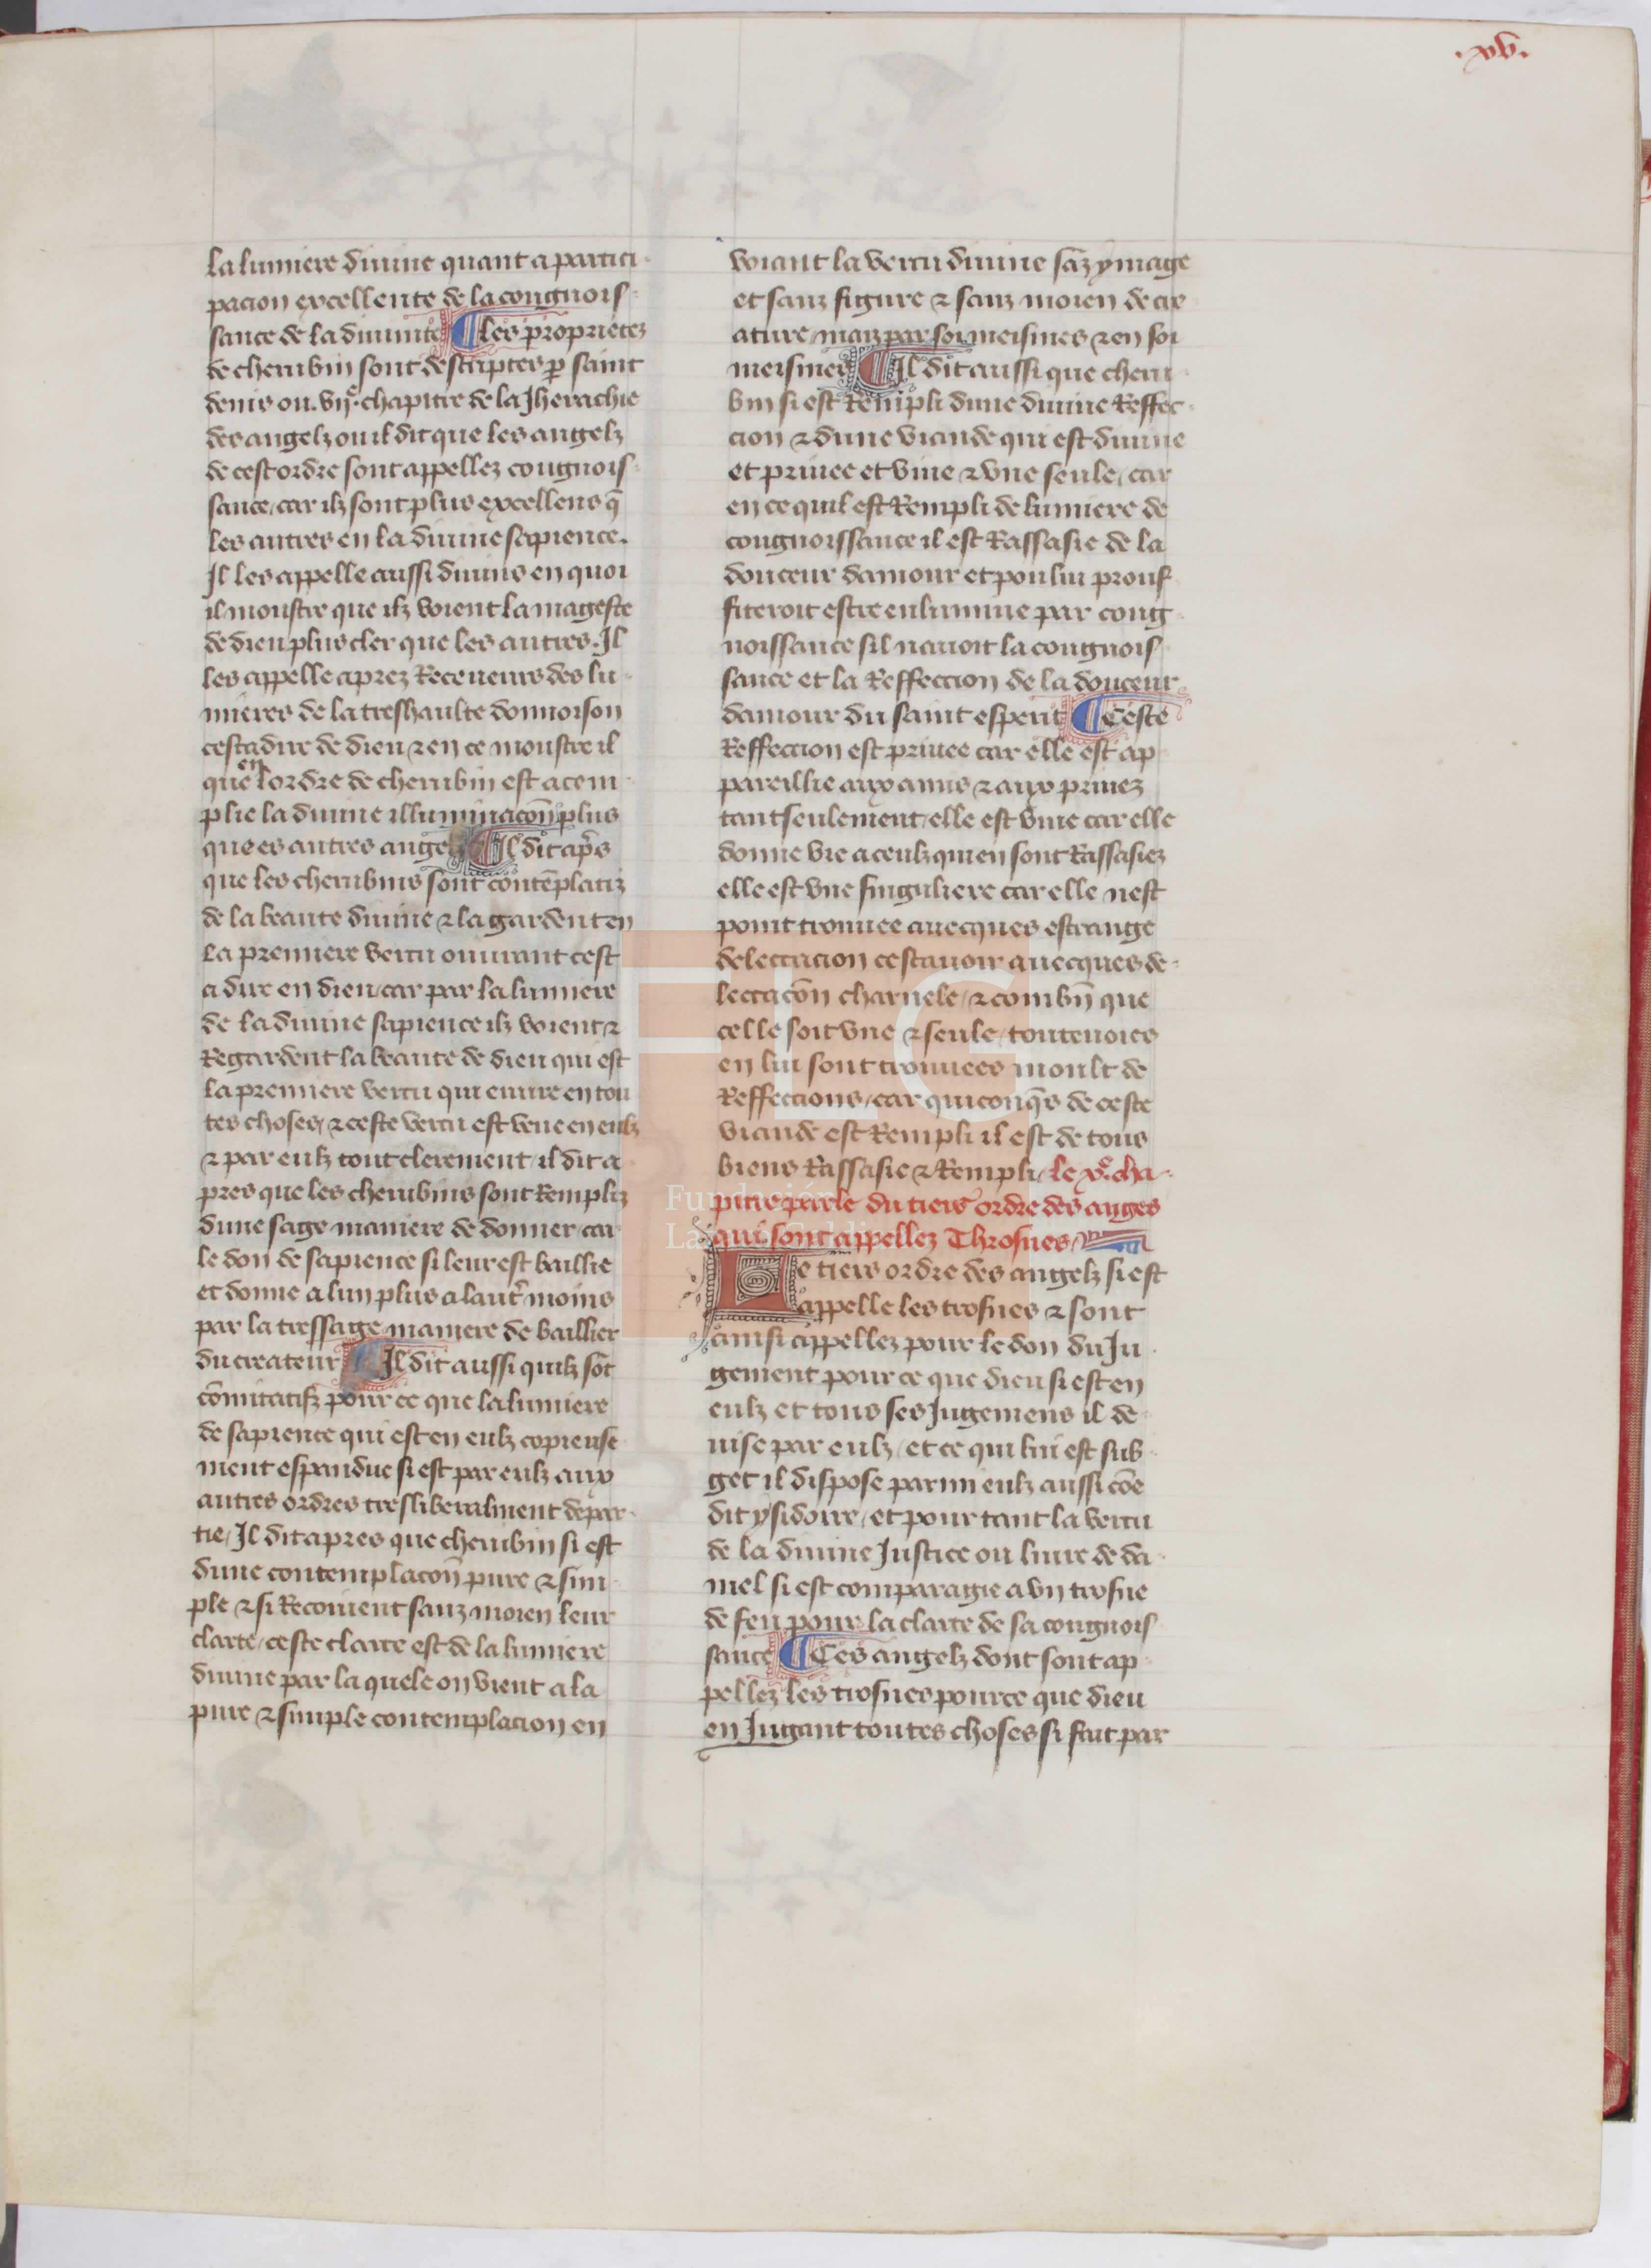 .xv.
la lumiere diuine quant a partici
pacion excellente de la congnois
sance de la diuinite ¶ les proprietez
de cherubin sont descriptes p saint
denis ou .vije. chapitre de la Jherachie
des angelz ou il dit que les angelz
de cest ordre sont appellez congnois
sance / car ilz sont plus excellens q̄
les autres en la diuine sapience.
Il les appelle aussi diuins en quoi
il monstre que ilz voient la mageste
de dieu plus cler que les autres. Il
les appelle aprez Receueurs des lu
mieres de la treshaulte donnoison
cest a dire de dieu ⁊ en ce monstre il
que en lordre de cherubin est acem
plie la diuine illuminacōn plus
que es autres angelz ¶ Il dit ap̄s
que les cherubins sont contēplatiz
de la beaute diuine ⁊ la gardent en
la premiere vertu ouurant cest
a dire en dieu / car par la lumiere
de la diuine sapience ilz voient ⁊
Regardent la beaute de dieu qui est
la premiere vertu qui euure en tou
tes choses / ⁊ ceste vertu est veue en eulz
⁊ par eulz tout clerement / il dit a
pres que les cherubins sont Rempliz
dune sage maniere de donner car
le don de sapience si leur est baillie
et donne a lun plus a laut̄ moins
par la tressage maniere de baillier
du createur ¶ Il dit aussi quilz sōt
cōmitatifz pour ce que la lumiere
de sapience qui est en eulz copieuse
ment espandue si est par eulz aux
autres ordres tresliberalment depar
tie / Il dit apres que cherubin si est
dune contemplacōn pure ⁊ sim
ple ⁊ si Recoiuent sanz moien leur
clarte / ceste clarte est de la lumiere
diuine par la quele on vient a la
pure ⁊ simple contemplacion en
voiant la vertu diuine sāz ymage
et sanz figure ⁊ sanz moien de cre
ature / maiz par soi meismes ⁊ en soi
meismes ¶ Il dit aussi que cheru
bin si est Rempli dune diuine Reffec
cion ⁊ dune viande qui est diuine
et priuee et viue ⁊ vne seule / car
en ce quil est Rempli de lumiere de
congnoissance il est Rassasie de la
douceur damour et pou lui prouf
fiteroit estre enlumine par cong
noissance sil nauoit la congnois
sance et la Reffeccion de la douceur
damour du saint esperit ¶ Ceste
Reffeccion est priuee car elle est ap
pareillie aux amis ⁊ aux priuez
tant seulement / elle est viue car elle
donne vie a ceulz qui en sont Rassasiez
elle est vne singuliere car elle nest
point trouuee auecques estrange
delectacion cest auoir auecques de
lectacōn charnele / ⁊ combn̄ que
celle soit vne ⁊ seule / toutenoies
en lui sont trouuees moult de
Reffeccions / car quiconq̄s de ceste
viande est Rempli il est de tous
biens Rassasie ⁊ Rempli / le xe. cha
pitre parle du tiers ordre des anges
qui sont appellez Throsnes
Le tiers ordre des angelz si est
appelle les trosnes ⁊ sont
ainsi appellez pour le don du Ju
gement pour ce que dieu si est en
eulz et tous ses Jugemens il de
uise par eulz / et ce qui lui est sub
get il dispose parmi eulz aussi cōe
dit ysidoire / et pour tant la vertu
de la diuine Justice ou liure de da
niel si est comparagie a vn trosne
de feu pour la clarte de sa congnois
sance ¶ Ces angelz dont sont ap
pellez les trosnes pource que dieu
en Jugant toutes choses si fait par